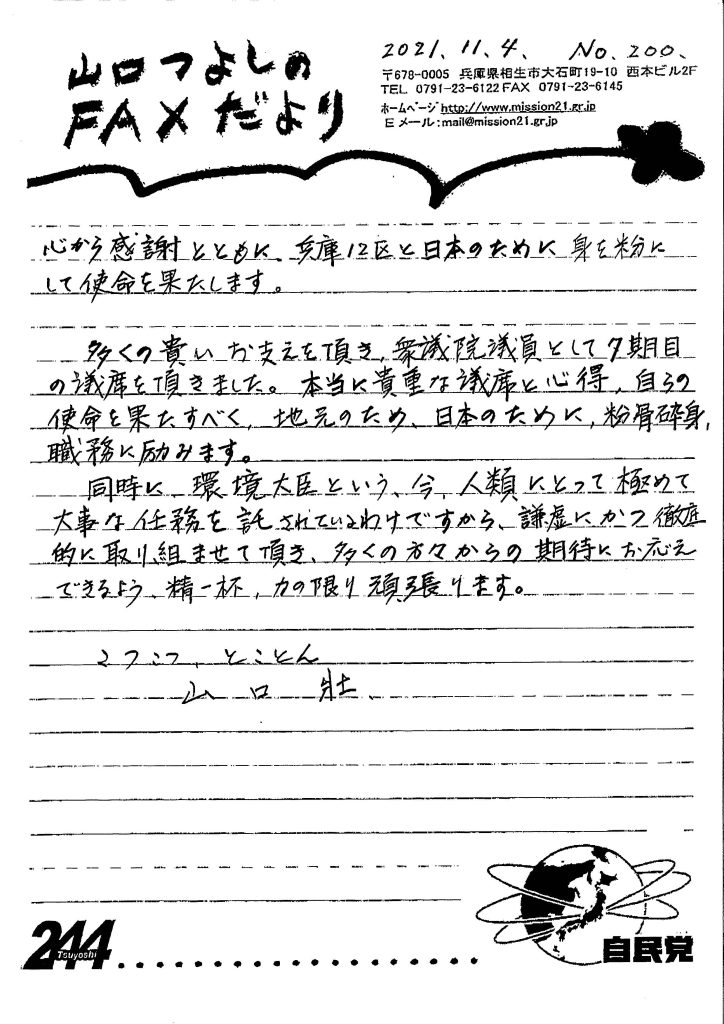 山口つよしの
FAXだより
2021.11.4. No.200.
〒678-0005 兵庫県相生市大石町19-10 西本ビル2F
TEL 0791-23-6122 FAX 0791-23-6145
ホームページ http://www.mission21.gr.jp
Eメール:mail@mission21.gr.jp
心から感謝とともに、兵庫12区と日本のために身を粉に
して使命を果たします。
多くの貴いお支えを頂き、衆議院議員として7期目
の議席を頂きました。本当に貴重な議席と心得、自らの
使命を果たすべく、地元のため、日本のために、粉骨砕身、
職務に励みます。
同時に、環境大臣という、今、人類にとって極めて
大事な任務を託されているわけですから、謙虚にかつ徹底
的に取り組ませて頂き、多くの方々からの期待にお応え
できるよう、精一杯、力の限り頑張ります。
こつこつ、とことん
山口 壯
244
Tsuyoshi
自民党